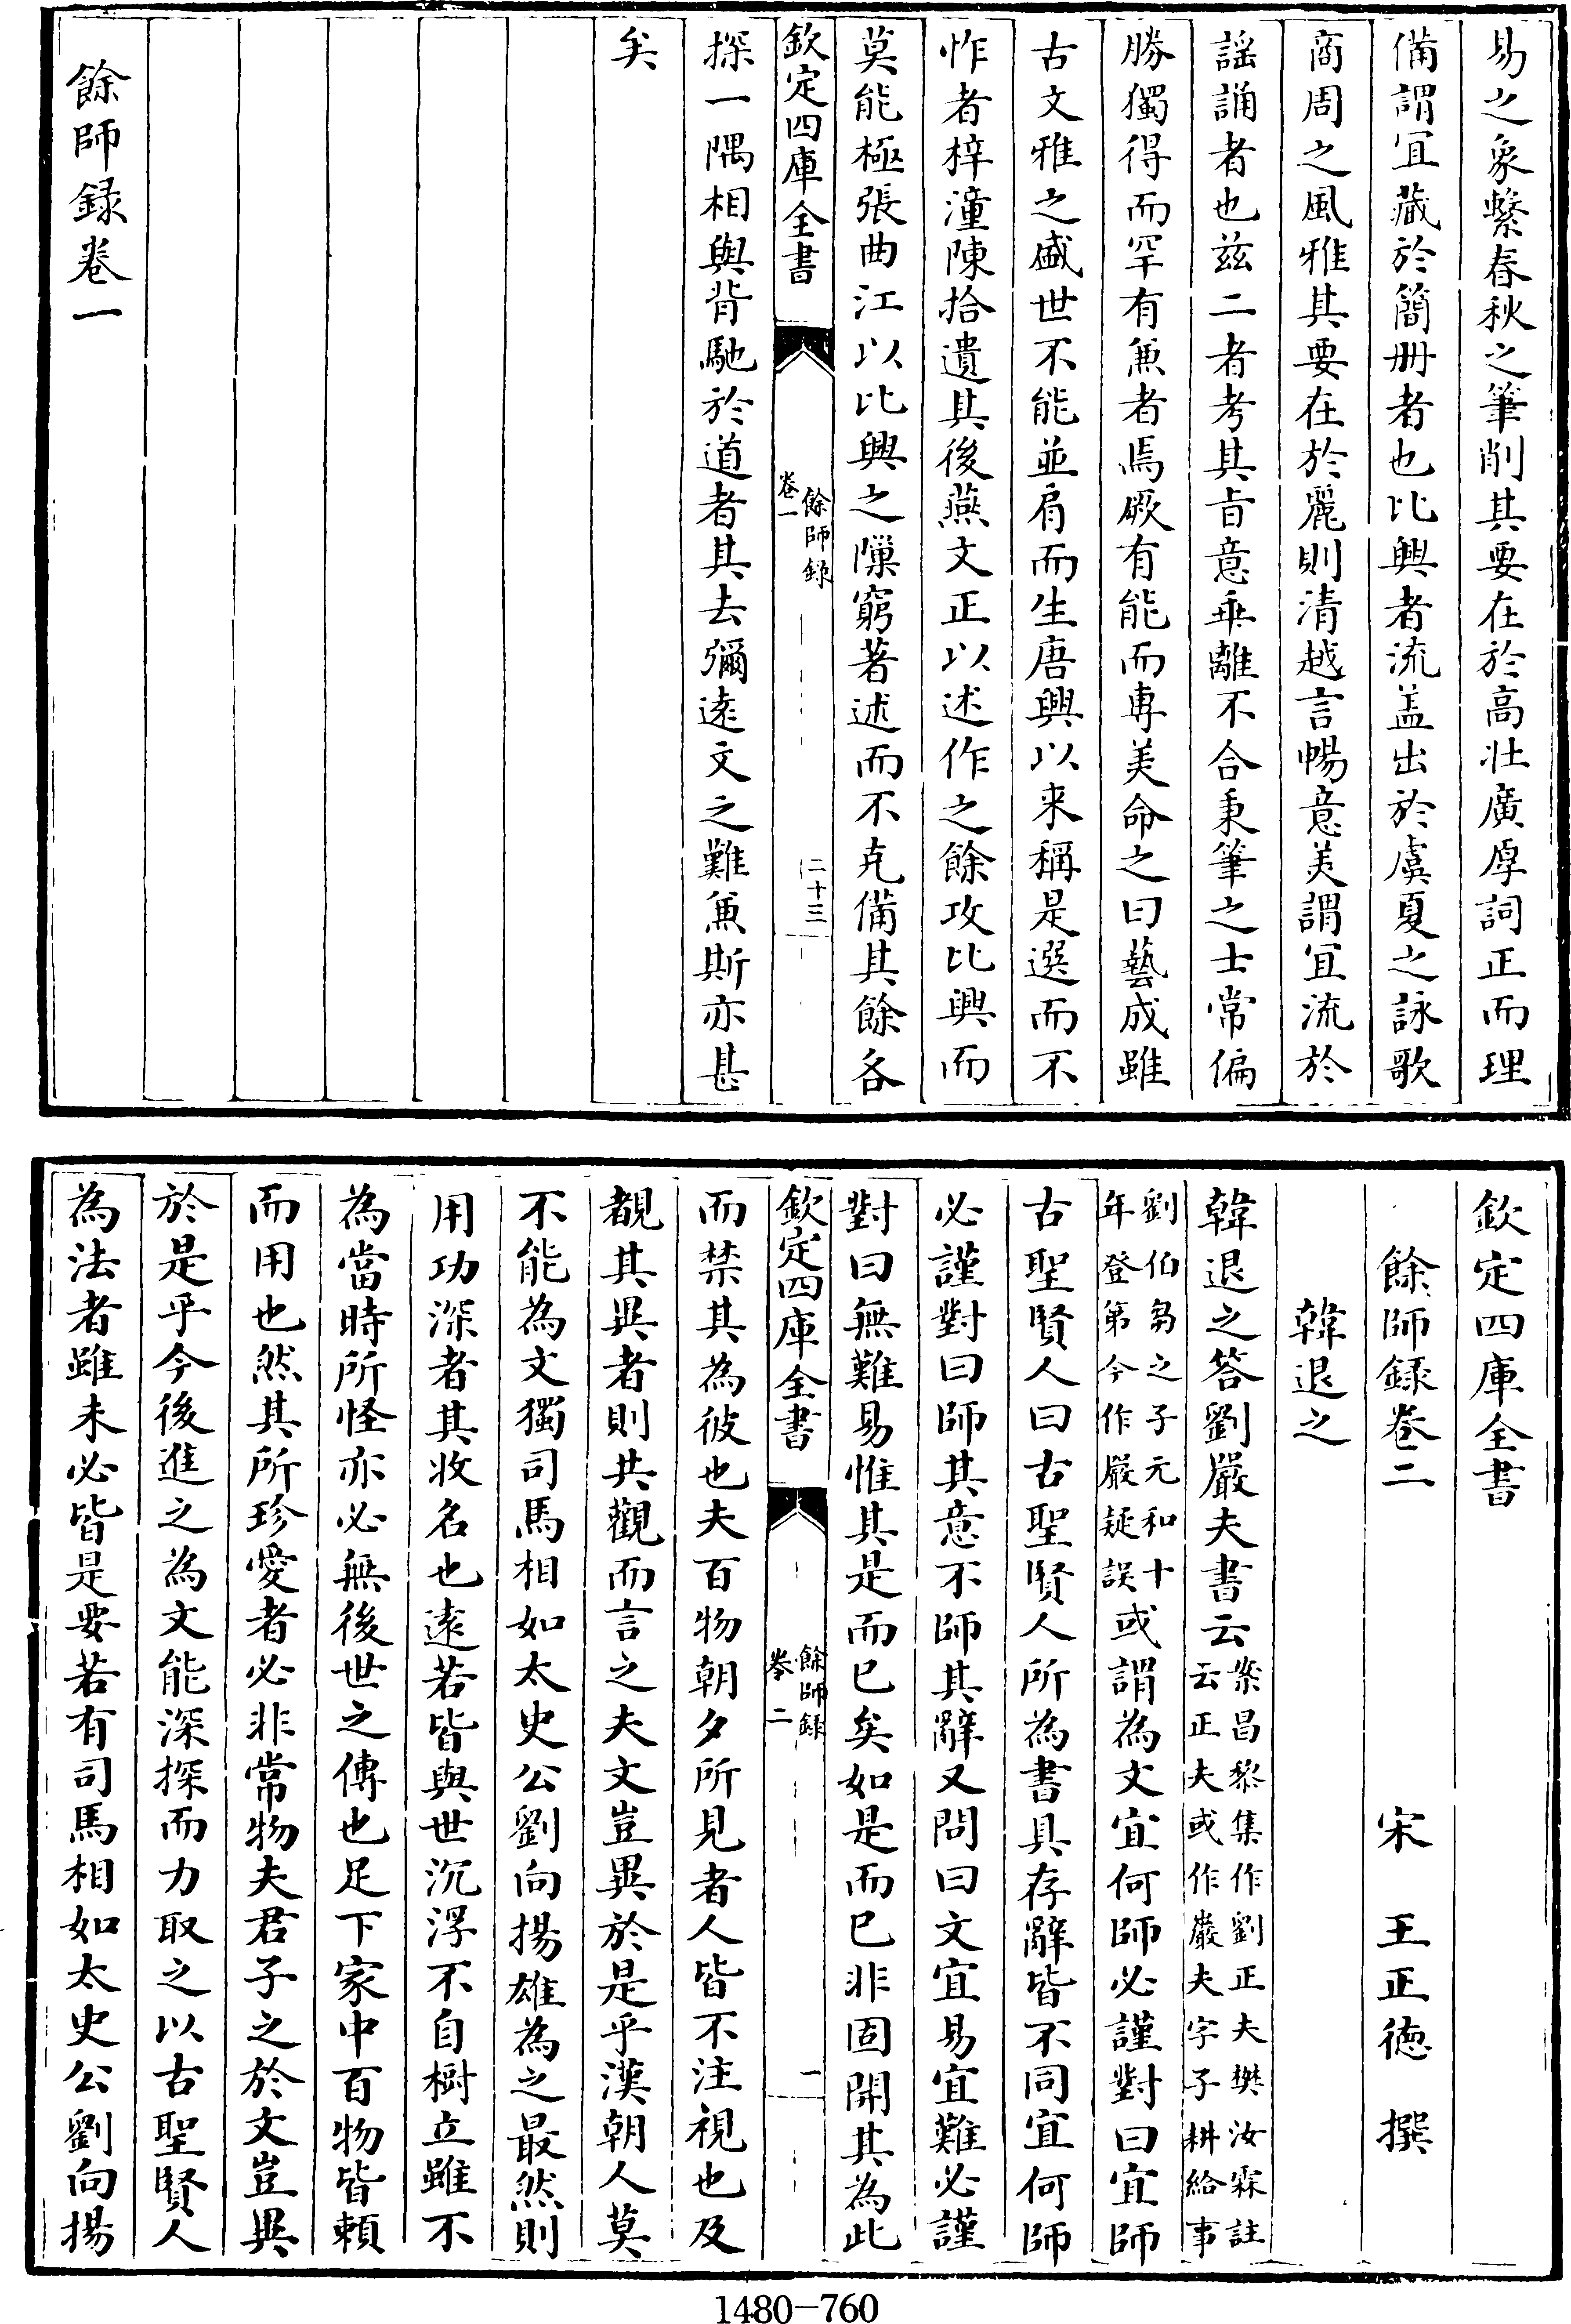 易之象繫春秋之筆削其要在於高壯廣厚詞正而理
備謂宜藏於簡册者也比興者流盖出於虞夏之詠歌
商周之風雅其要在於麗則清越言暢意美謂宜流於
謡誦者也兹二者考其旨意乖離不合秉筆之士常偏
勝獨得而罕有兼者焉厥有能而専美命之曰藝成雖
古文雅之盛世不能並肩而生唐興以来稱是選而不
怍者梓潼陳拾遺其後燕文正以述作之餘攻比興而
莫能極張曲江以比興之隟窮著述而不克備其餘各
欽定四庫全書
餘師録
卷一
二十三
探一隅相與背馳於道者其去彌逺文之難兼斯亦甚
矣
餘師録卷一
欽定四庫全書
餘師録卷二
宋 王正徳 撰
韓退之
韓退之答劉嚴夫書云
案昌黎集作劉正夫樊汝霖註
云正夫或作巖夫字子耕給事
劉伯芻之子元和十
年登第今作嚴疑誤
或謂為文宜何師必謹對曰宜師
古聖賢人曰古聖賢人所為書具存辭皆不同宜何師
必謹對曰師其意不師其辭又問曰文宜易宜難必謹
對曰無難易惟其是而已矣如是而已非固開其為此
欽定四庫全書
餘師録
卷二
一
而禁其為彼也夫百物朝夕所見者人皆不注視也及
覩其異者則共觀而言之夫文豈異於是乎漢朝人莫
不能為文獨司馬相如太史公劉向揚雄為之最然則
用功深者其收名也逺若皆與世沉浮不自樹立雖不
為當時所怪亦必無後世之傳也足下家中百物皆頼
而用也然其所珍愛者必非常物夫君子之於文豈異
於是乎今後進之為文能深探而力取之以古聖賢人
為法者雖未必皆是要若有司馬相如太史公劉向揚
1480-760